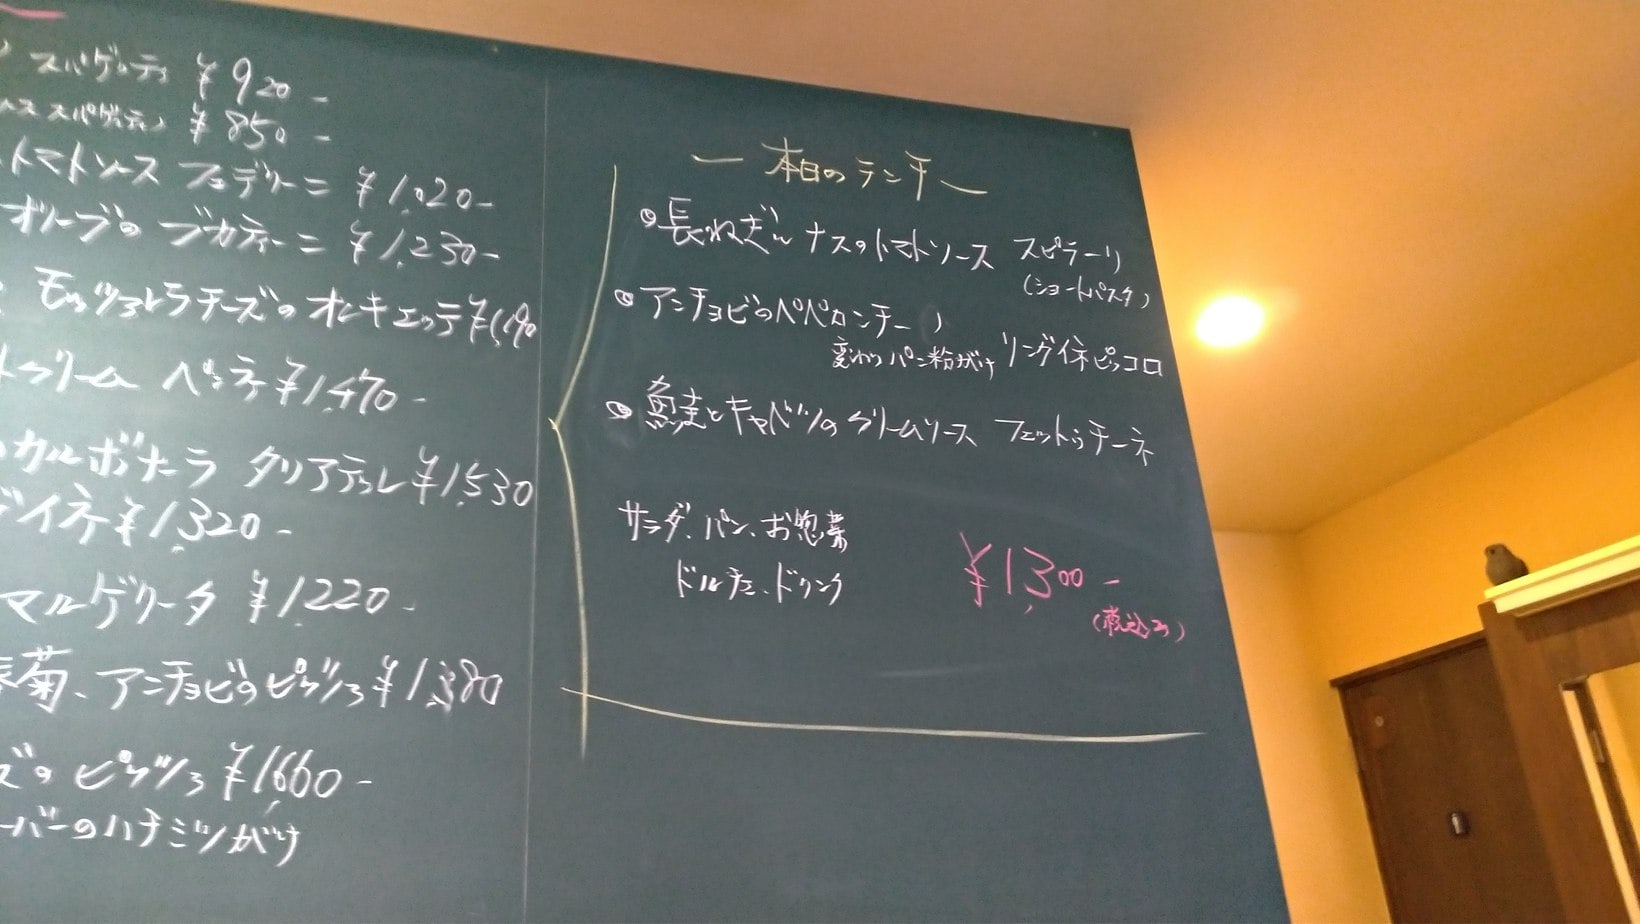 スパゲッティ ¥920-
ース スパゲッティ ¥850-
トマトソース フェデリーニ ¥1,020-
オリーブの ブカティーニ ¥1,230-
モッツァレラチーズの オレキエッテ ¥1,190
クリーム ペンネ ¥1,470-
カルボナーラ タリアテッレ ¥1,530
グイネ ¥1,320-
マルゲリータ ¥1,220-
春菊、アンチョビのピッツァ ¥1,380
ズのピッツァ ¥1,660-
ーバーのハチミツがけ
ー 本日のランチ ー
長ねぎと ナスのトマトソース スピラーリ
(ショートパスタ)
アンチョビのペペロンチーノ
変わりパン粉がけ リングイネピッコロ
鮭とキャベツのクリームソース フェットゥチーネ
サラダ、パン、お惣菜
ドルチェ、ドリンク
¥1,300-
(税込み)